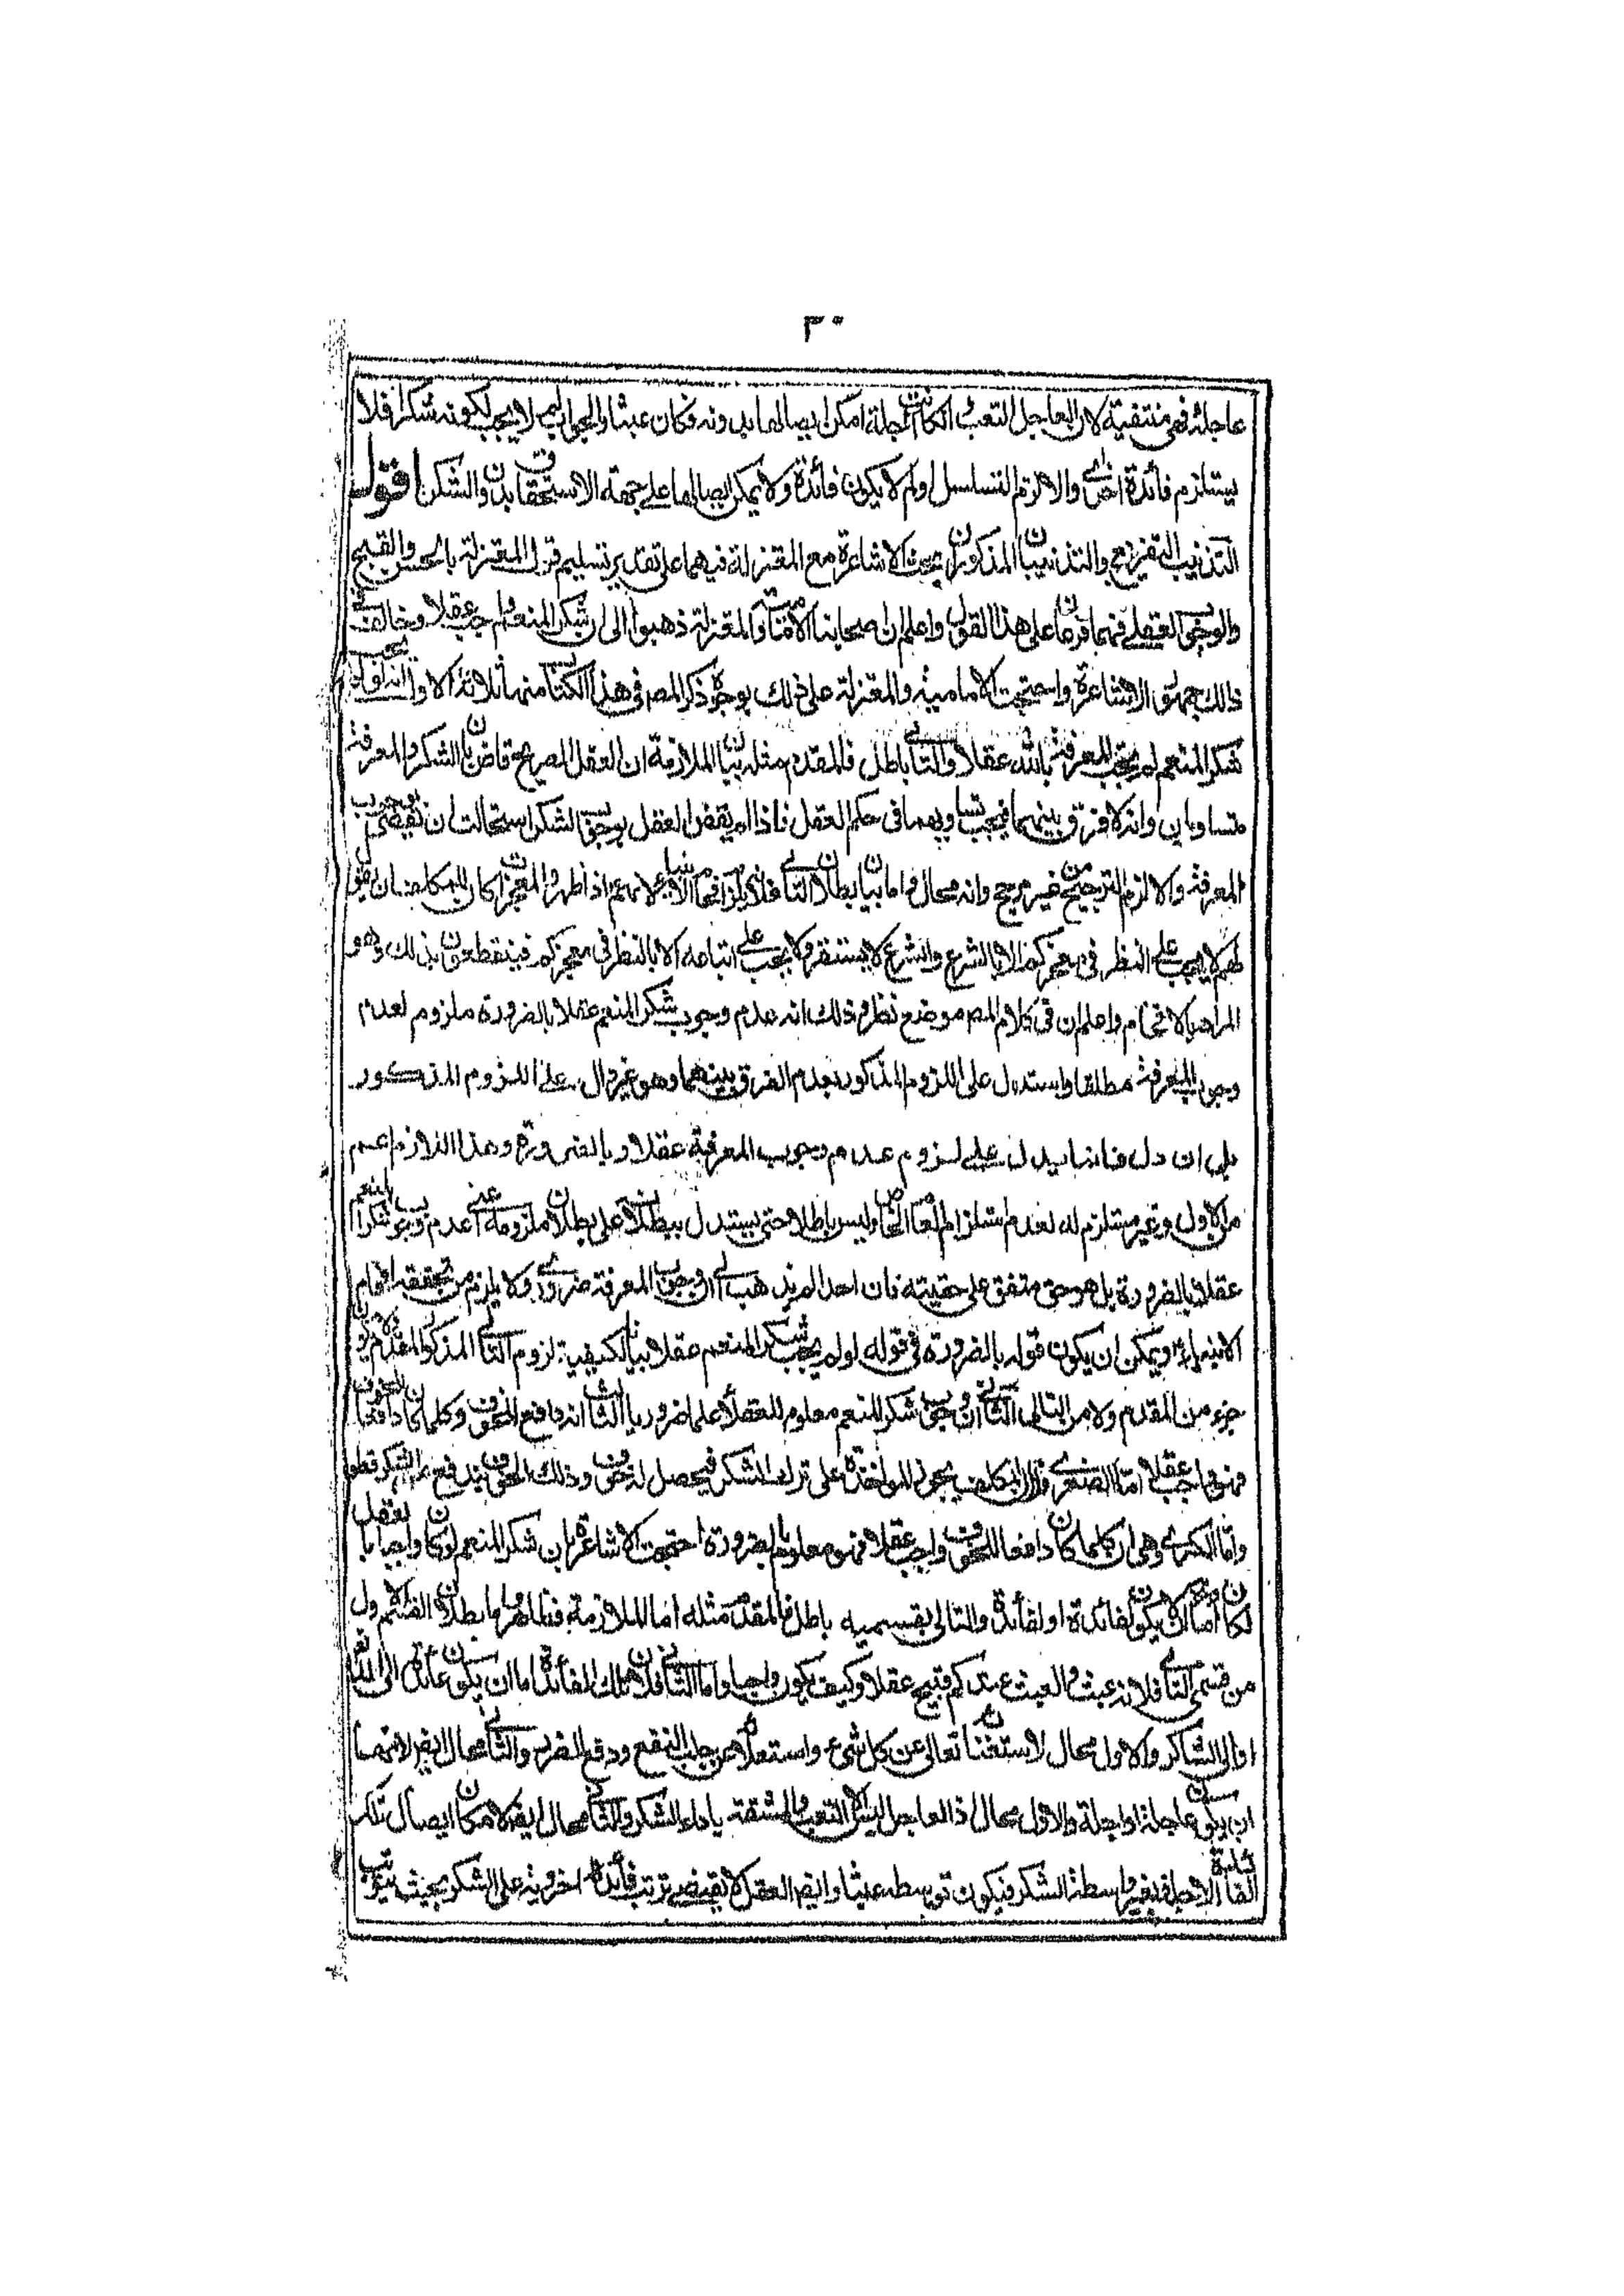 ٣٠
عاجلة فهى منتفية لان العاجل التعب وان كانت اجلة امكن ايصالها بدونه فكان عبثا والجواب لم لا يجب لكونه شكرا فلا
يستلزم فائدة اخرى والا لزم التسلسل او لم لا يكون فائدة ولا يمكن ايصالها على جهة الاستحقاق بدون الشكر اقول
التذنيب التفريع والتذنيبان المذكوران بحث الاشاعرة مع المعتزلة فيهما على تقدير تسليم قول المعتزلة بالحسن والقبح
والوجوب العقلى فهما فرعان على هذا القول واعلم ان اصحابنا الامامية والمعتزلة ذهبوا الى ان شكر المنعم واجب عقلا وخالف فى
ذلك جمهور الاشاعرة واحتجت الامامية والمعتزلة على ذلك بوجوه ذكر المص فى هذا الكتاب منها ثلاثة الاول انه لو لم يجب
شكر المنعم لم تجب المعرفة بالله عقلا والتالى باطل فالمقدم مثله بيان الملازمة ان العقل الصريح قاض بان الشكر والمعرفة
متساويان وانه لا فرق بينهما فيجب تساويهما فى حكم العقل فاذا لم يقض العقل بوجوب الشكر استحالت ان يقضى بوجوب
المعرفة والا لزم الترجيح من غير مرجح وانه محال واما بيان بطلان التالى فلانه يلزم افحام الانبياء لانهم اذا اظهروا المعجزات كان للمكلف ان يقول
لهم لا يجب على النظر فى معجزكم الا بالشرع والشرع لا يستقر ولا يجب على اتباعه الا بالنظر فى معجزكم فينقطعون بذلك وهو
المراد بالافحام واعلم ان فى كلام المص موضع نظر وذلك انه عدم وجوب شكر المنعم عقلا بالضرورة ملزوم لعدم
وجوب المعرفة مطلقا واستدل على اللزوم المذكور بعدم الفرق بينهما وهو غير دال على اللزوم المذكور
بل ان دل فانما يدل على لزوم عدم وجوب المعرفة عقلا وبالضرورة وهذا اللازم اعم
من الاول وغير مستلزم له لعدم استلزام العام الخاص وليس باطلا حتى يستدل ببطلانه على بطلان ملزومه اعنى عدم وجوب شكر المنعم
عقلا بالضرورة بل هو حق متفق على حقيته فان احدا لم يذهب الى ان وجوب المعرفة ضرورى ولا يلزم من تحققه افحام
الانبياء ويمكن ان يكون قوله بالضرورة فى قوله لو لم يجب شكر المنعم عقلا بيانا لكيفية لزوم التالى المذكور للمقدم
جزء من المقدم ولا من التالى الثانى ان وجوب شكر المنعم معلوم للعقلاء علما ضروريا الثالث انه دافع للخوف وكلما كان دافعا للخوف
فهو واجب عقلا اما الصغرى فلان المكلف يجوز المواخذة على ترك الشكر فيحصل له خوف وذلك الخوف يندفع بالشكر قطعا
واما الكبرى وهى ان كلما كان دافعا للخوف واجب عقلا فهو معلوم بالضرورة احتجت الاشاعرة بان شكر المنعم لو كان واجبا بالعقل
لكان اما ان لا يكون لفائدة او لفائدة والتالى بقسميه باطل فالمقدم مثله اما الملازمة فظاهرة واما بطلان القسم الاول
من قسمى التالى فلانه عبث والعبث عندكم قبيح عقلا وكيف يكون واجبا واما الثانى فلان تلك الفائدة اما ان يكون عائدة الى الله تع
او الى الشاكر والاول محال لاستغنائه تعالى عن كل شىء واستعلائه عن جلب النفع ودفع الضرر والثانى محال ايضا لانها
ان يكون عاجلة او اجلة والاول محال اذ العاجل ليس الا التعب والمشقة باداء الشكر والثانى محال ايضا لامكان ايصال تلك
الفائدة الاجلة بغير واسطة الشكر فيكون توسطه عبثا وايضا العقل لا يقضى ترتب فائدة اخروية على الشكر بحيث يترتب